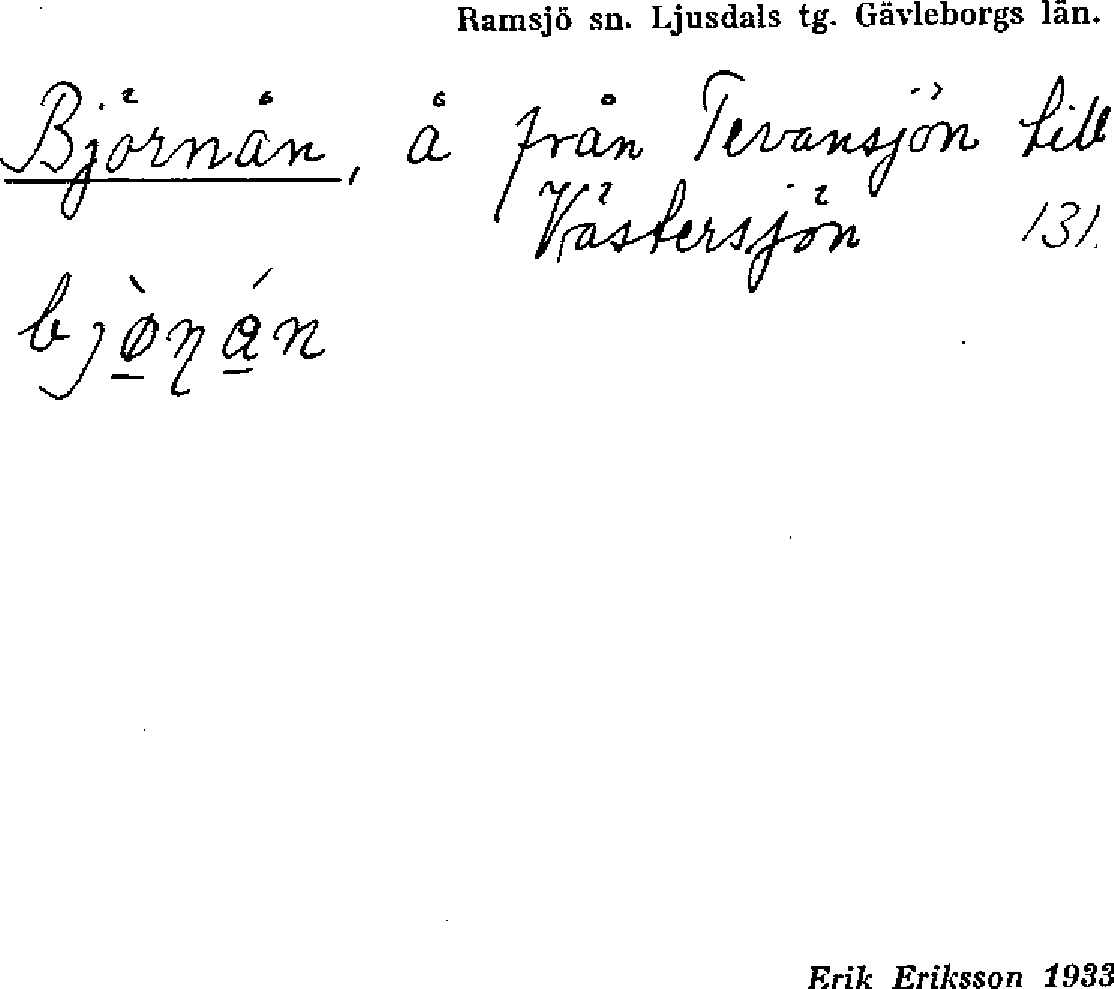 Ramsjö sn. Ljusdals tg. Gävleborgs län.
Björnån, å från Tevansjön till
Västersjön 131.
bjø̱̀ɳḁ́n
Erik Eriksson 1933